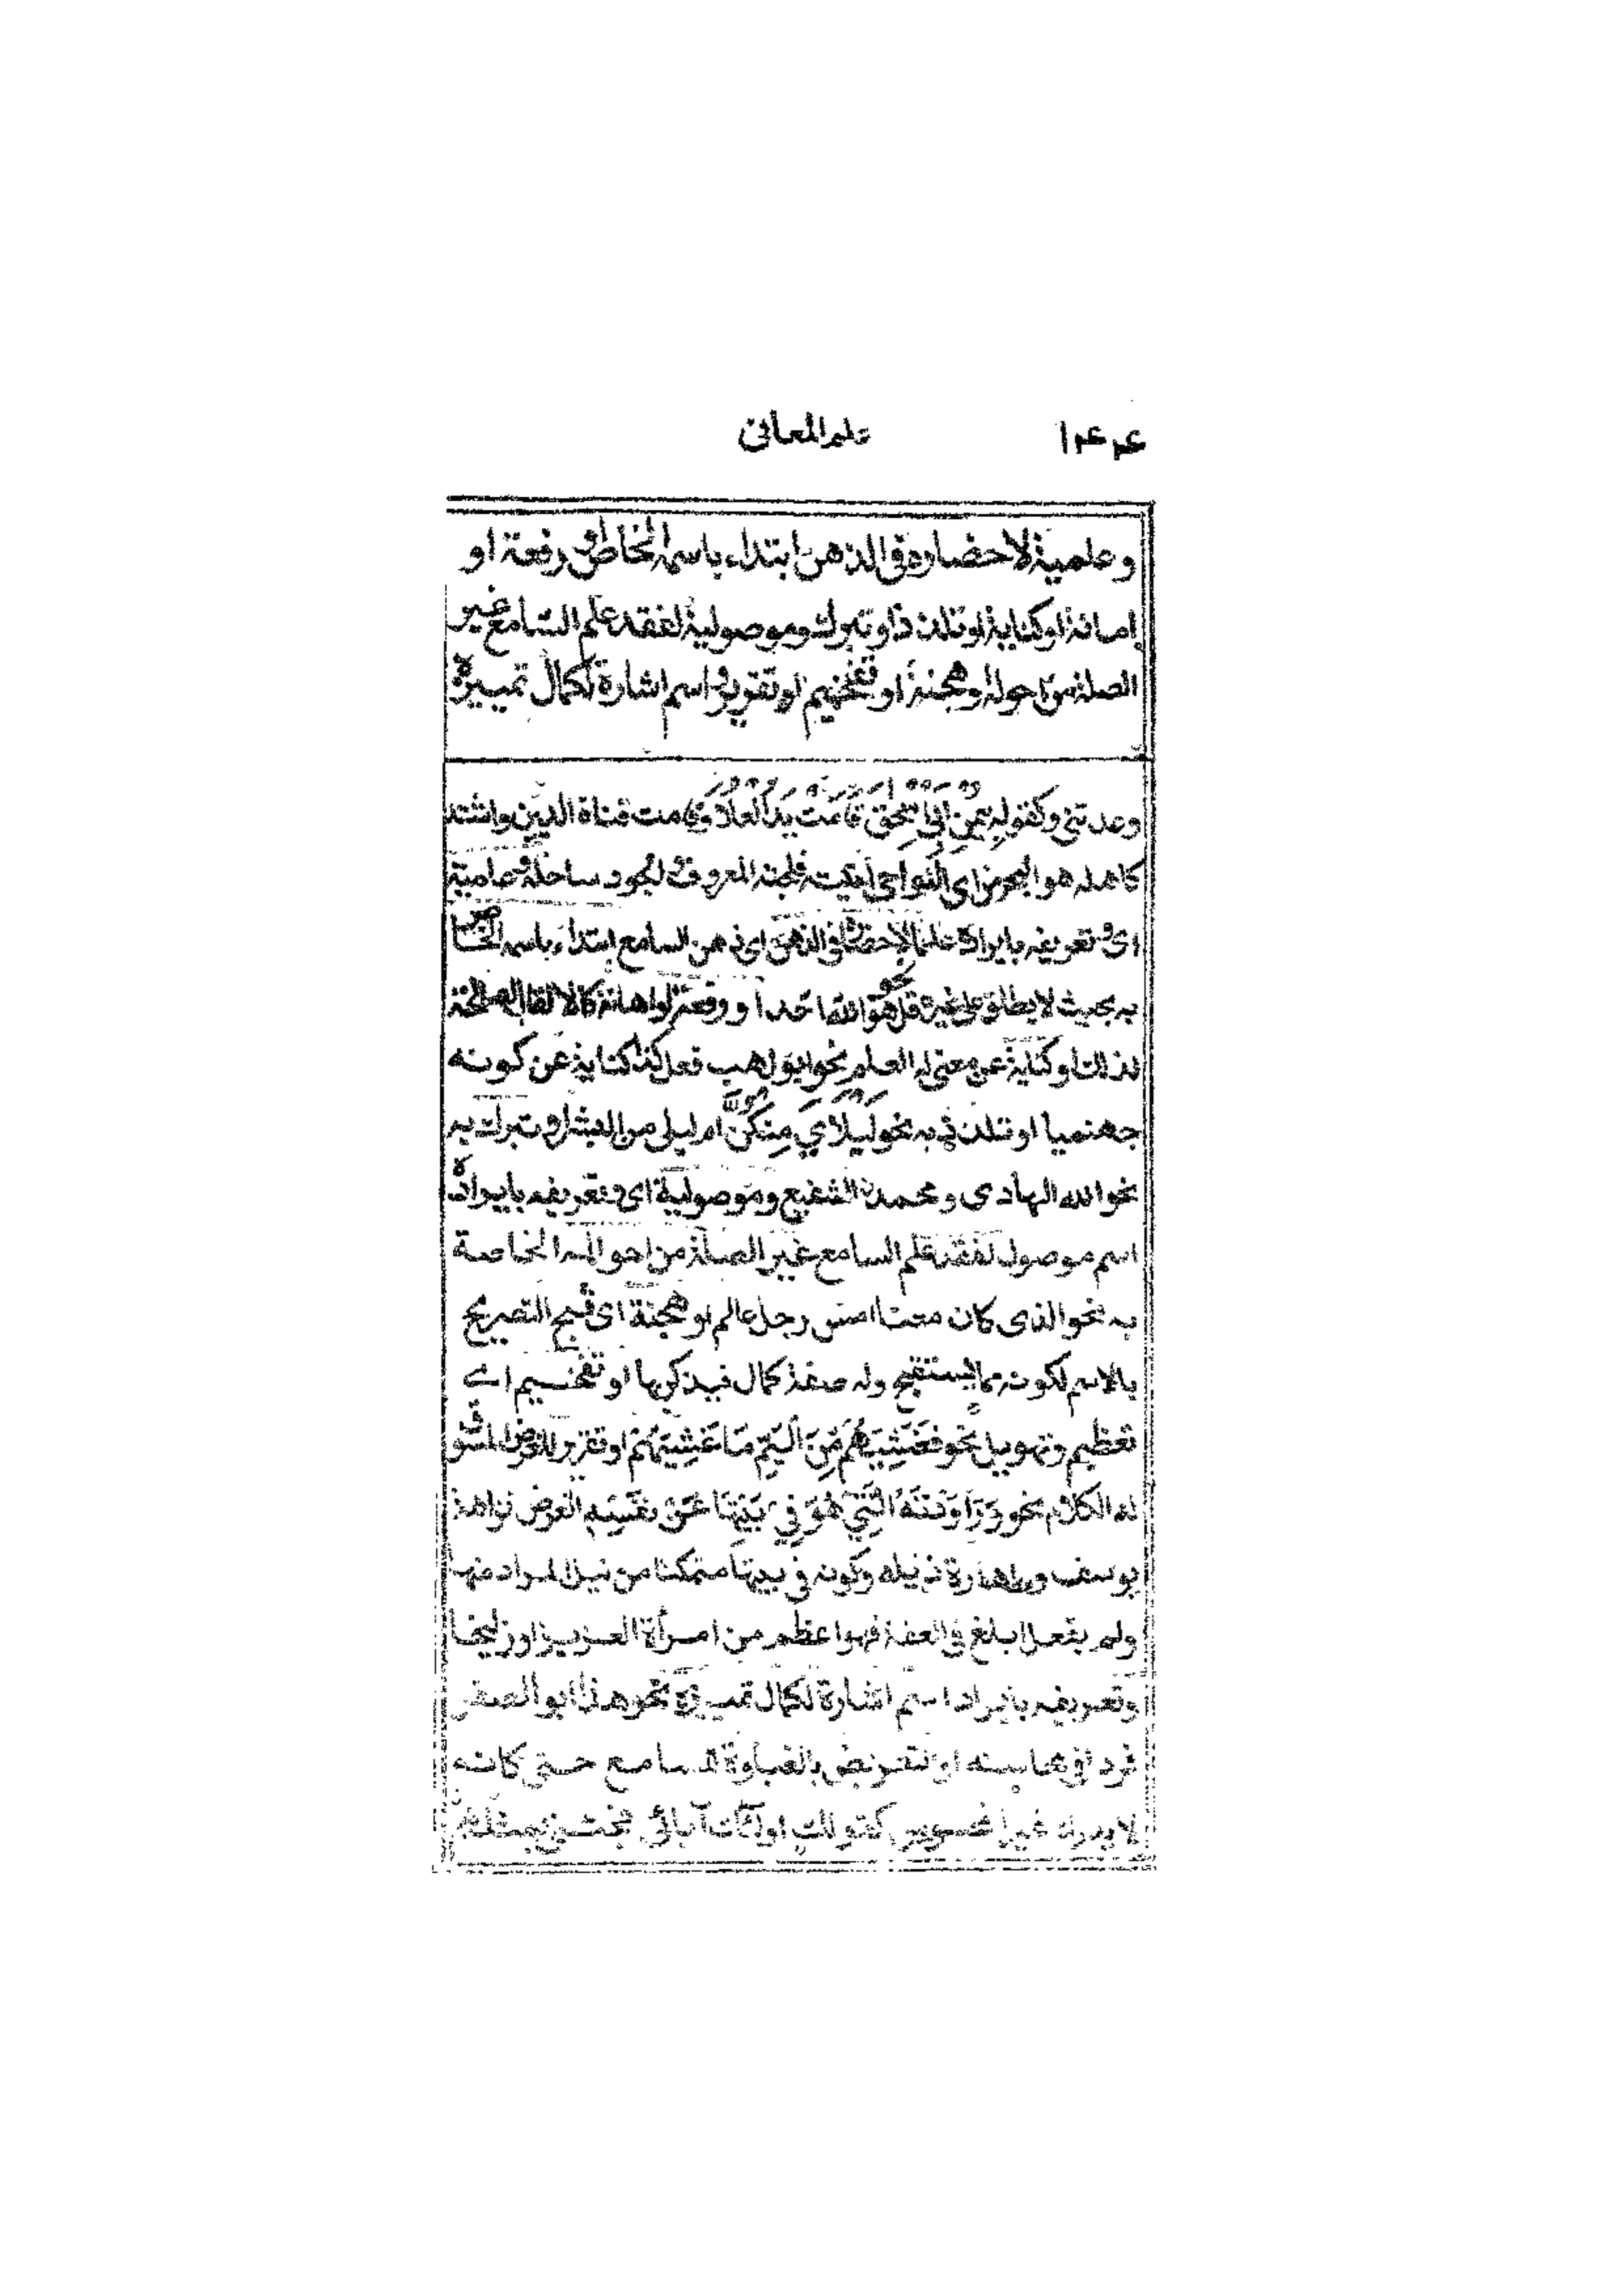 ١٤٤ علم المعانی
وعلمية لاحضاره فی الذهن ابتداء باسمه الخاص و رفعة او
اهانة او كناية او تلذذ او تبرك وموصولية لفقد علم السامع غير
الصلة من احواله او هجنة او تفخيم او تقرير و اسم اشارة لكمال تمييزه
وعدتنی وكقوله بيمن ابی اسحق قامت يد العلا وقامت قناة الدين واشتد
كاهله هو البحر من ای النواحی اتيته فلجته المعروف والجود ساحله وعلمية
ای وتعريفه بايراده علما لاحضاره فی الذهن ای ذهن السامع ابتداء باسمه الخاص
به بحيث لا يطلق على غيره نحو قل هو الله احد او رفعة او اهانة كالالقاب الصالحة
لذلك او كناية عن معنى له العلم نحو ابو لهب فعل كذا كناية عن كونه
جهنميا او تلذذ به نحو ليلاي منكن ام ليلى من البشر او تبرك به
نحو الله الهادی ومحمد الشفيع وموصولية ای وتعريفه بايراده
اسم موصول لفقد علم السامع غير الصلة من احواله الخاصة
به نحو الذی كان معنا امس رجل عالم او هجنة ای قبح التصريح
بالاسم لكونه مما يستقبح وله صفة كمال فيذكر بها او تفخيم ای
تعظيم وتهويل نحو فغشيهم من اليم ما غشيهم او تقرير للغرض المسوق
له الكلام نحو وراودته التي هو في بيتها عن نفسه الغرض نزاهة
يوسف وطهارة ذيله وكونه فی بيتها متمكنا من نيل المراد منها
ولم يفعل ابلغ فی العفة فهو اعظم من امرأة العزيز او زليخا
وتعريفه بايراد اسم اشارة لكمال تمييزه نحو هذا ابو الصقر
فردا فی محاسنه او لتعريض بالغباوة للسامع حتى كانه
لا يدرك غير المحسوس كقوله اولئك آبائی فجئنی بمثلهم